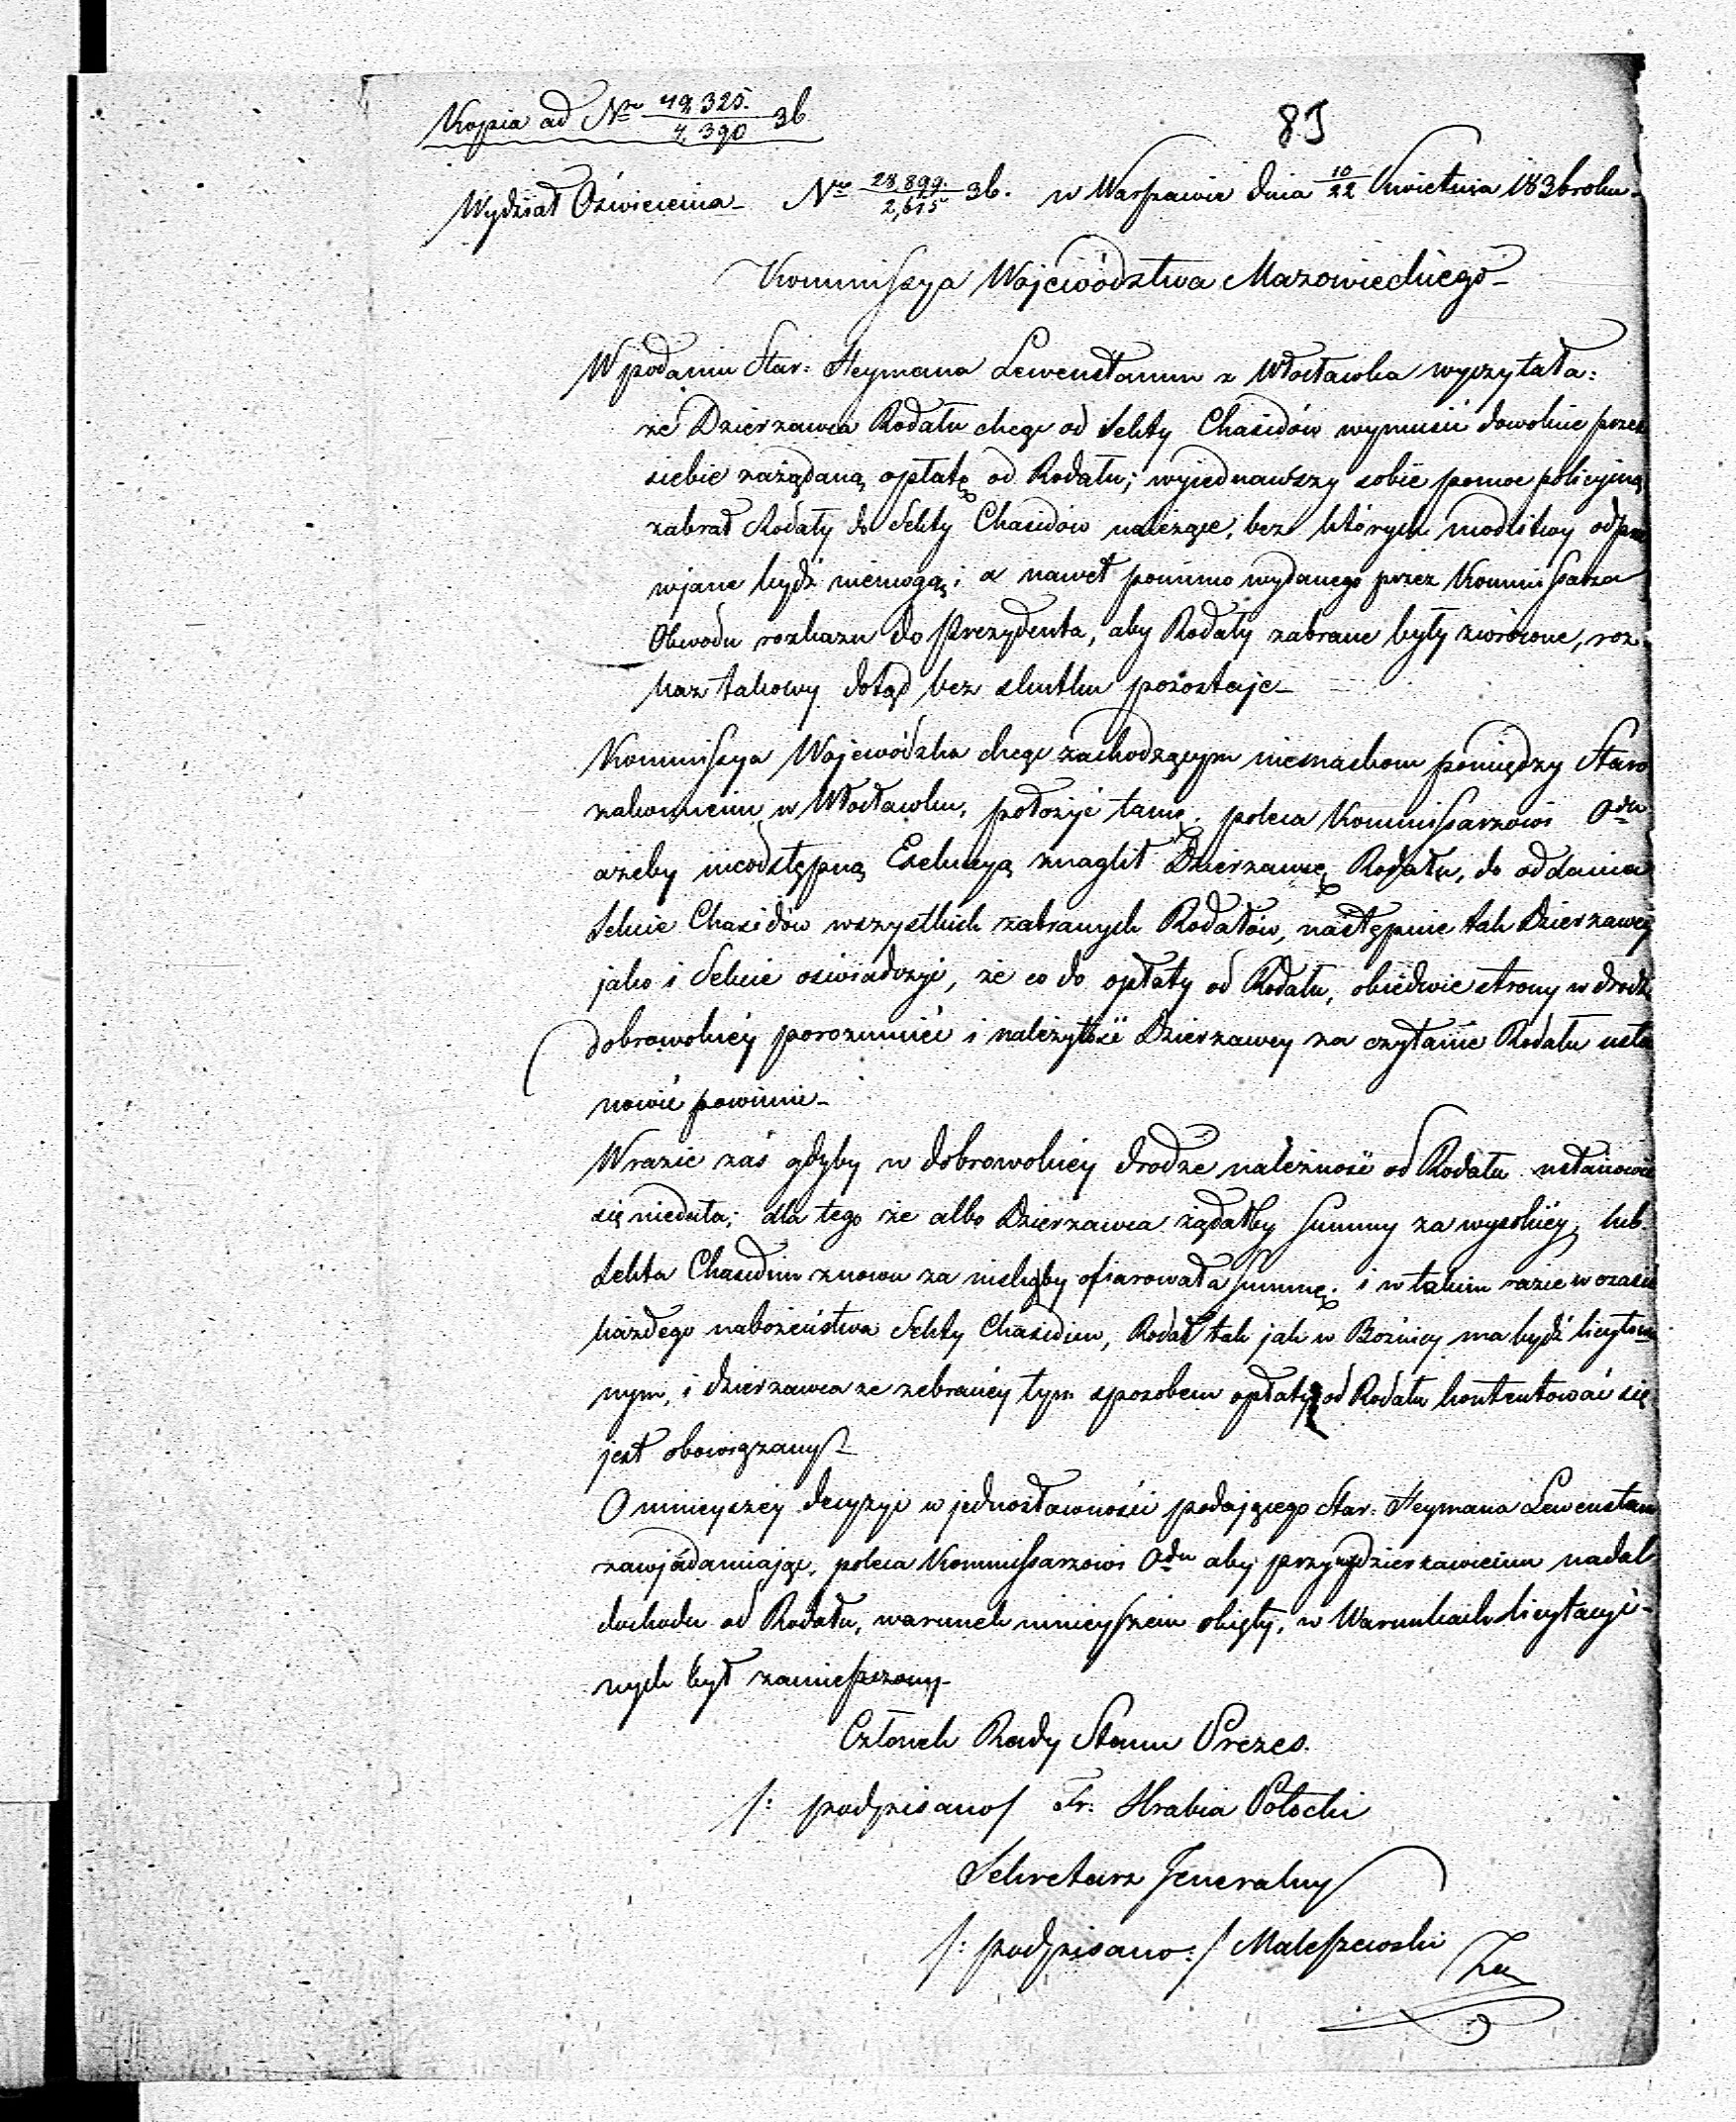 Kopia ad Nro 49,325./4,390 36
85
Wydział Oświecenia - Nro 28,899./2,615 36. w Warszawie dnia 10/22 Kwietnia 1836 roku -
Kommissya Województwa Mazowieckiego -
W podaniu Star: Heymana Lewenstamm z Włocławka wyczytała:
że Dzierzawca Rodału chcąc od Sekty Chasidów wymusić dowolnie przez
siebie zażądaną opłatę od Rodału; wyjednawszy sobie pomoc policyjną
zabrał Rodały do Sekty Chasidów należące, bez których modlitwy odpra
wjane bydź niemogą; a nawet pomimo wydanego przez Kommissarza
Obwodu rozkazu do Prezydenta, aby Rodały zabrane były zwrócone, roz-
kaz takowy dotąd bez skutku pozostaje -
Kommissya Wojewódzka chcąc zachodzącym niesnaskom pomiędzy Staro
zakonnemi w Włocławku, położyć tamę, poleca Kommissarzowi Odu
ażeby nieodstępną Exekucyą znaglił Dzierzawcę Rodału, do oddania
Sekcie Chasidów wszystkich zabranych Rodałów, następnie tak Dzierzawcy
jako i Sekcie oświadczyć, że co do opłaty od Rodału, obiedwie strony w drodze
dobrowolnéy porozumieć i należytość Dzierzawcy za czytanie Rodału usta
nowić powinni -
W razie zaś gdyby w dobrowolnéy drodze należność od Rodału ustanowić
się niedała; dla tego że albo Dzierzawca żądałby summy za wysokiéy, lub
Sekta Chasidim znowu za niskąby ofiarowała summę; i w takim razie w czasie
każdego nabożeństwa Sekty Chasidim, Rodał tak jak w Bóźnicy ma bydź licytowa
nym, i dzierzawca ze zebranéy tym sposobem opłaty od Rodału kontentować się
jest obowiązanym -
O ninieyszéy decyzyi w jednostawności podającego Star: Heymana Lewenstam
zawjadamiając, poleca Kommissarzowi Odu aby przy wydzierzawieniu nadal
dochodu od Rodału, warunek ninieyszém objęty, w Warunkach licytacyi-
nych był zamieszczony -
Członek Rady Stanu Prezes.
/: podpisano / Fr: Hrabia Potocki
Sekretarz Jeneralny
/: podpisano: / Maleszewski